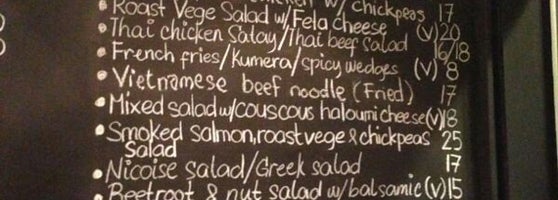 w/ chickpeas 17
• Roast Vege Salad w/Fela cheese (V)20
• Thai chicken Salay/Thai beef Salad 16/18
• French fries/Kumera/spicy wedges (V) 8
• Vietnamese beef noodle (Fried) 17
• Mixed salad w/couscous haloumi cheese(V)18
• Smoked Salmon,roast vege & chickpeas 25
Salad
• Nicoise Salad/Greek salad 17
• Beetroot & nut salad w/balsamic (V)15